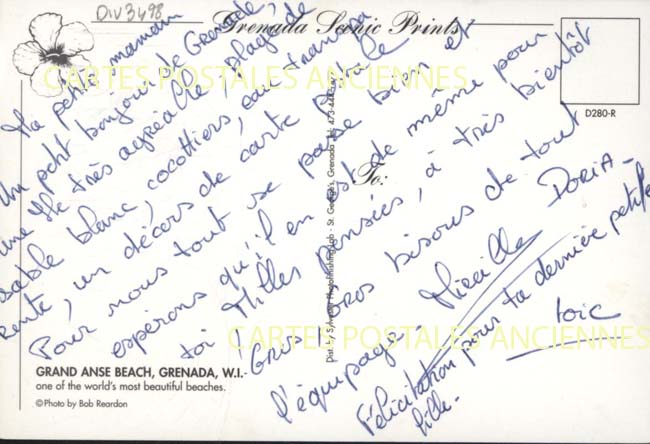 DIV3498
Grenada Scenic Prints
CARTES POSTALES ANCIENNES
D280-R
To:
Ma petite mamam
Un petit bonjour de Grenade,
une île très agréable, plage de
sable blanc, cocottiers, eau transpa
rente, un décors de carte Postale
Pour nous tout se passe bien et
espérons qu'il en est de même pour
toi Milles Pensées, à très bientôt
Gros Gros bisous de tout
l'équipage Mireille DORIA-
Loïc
Félicitation pour ta dernière petite
fille-
CARTES POSTALES ANCIENNES
GRAND ANSE BEACH, GRENADA, W.I.-
one of the world's most beautiful beaches.
©Photo by Bob Reardon
Photofinishing Lab - St. George's, Grenada Tel: 473-444